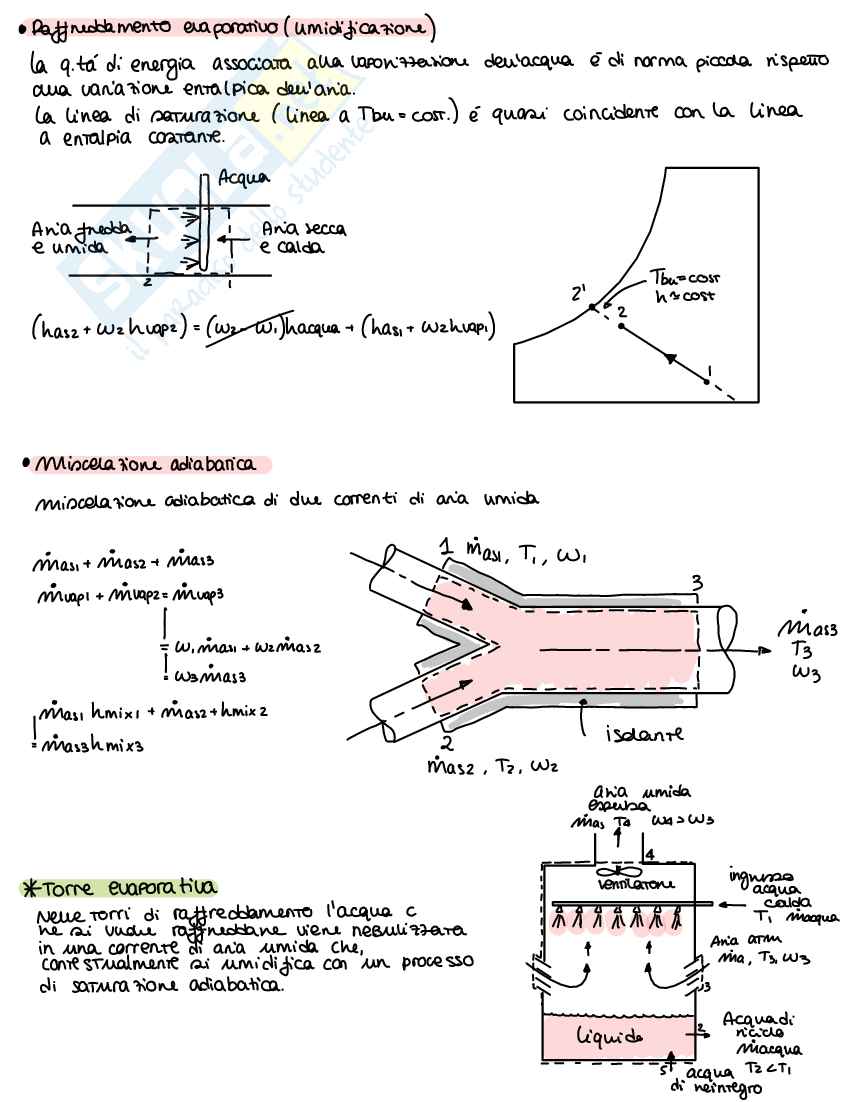 • Raffreddamento evaporativo (umidificazione)
La q.tá di energia associata alla vaporizzazione dell'acqua é di norma piccola rispetto
alla variazione entalpica dell'aria.
La linea di saturazione (linea a Tbu = cost.) é quasi coincidente con la linea
a entalpia costante.
Acqua
Aria fredda
e umida
Aria secca
e calda
2
1
(has2 + ω2 hvap2) = (ω2 - ω1)hacqua + (has1 + ω2hvap1)
Tbu=cost
h≈cost
2'
2
1
• Miscelazione adiabatica
miscelazione adiabatica di due correnti di aria umida
ṁas1 + ṁas2 + ṁas3
ṁvap1 + ṁvap2 = ṁvap3
= ω1ṁas1 + ω2ṁas2
= ω3ṁas3
ṁas1 hmix1 + ṁas2+hmix2
= ṁas3hmix3
1 ṁas1, T1, ω1
3
ṁas3
T3
ω3
isolante
2
ṁas2, T2, ω2
* Torre evaporativa
Nelle torri di raffreddamento l'acqua c
he si vuole raffreddare viene nebulizzata
in una corrente di aria umida che,
contestualmente si umidifica con un processo
di saturazione adiabatica.
Aria umida
espulsa
ṁas T4 ω4>ω3
4
ventilatore
ingresso
acqua
calda
T1 ṁacqua
Aria atm
ṁa, T3, ω3
3
liquido
2
Acqua di
riciclo
ṁacqua
T2<T1
5
acqua
di reintegro
skuola.net
il paradiso dello studente